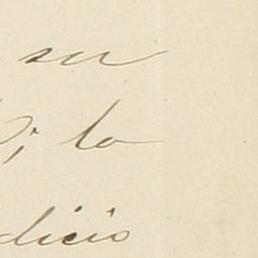 su
; lo
dicio